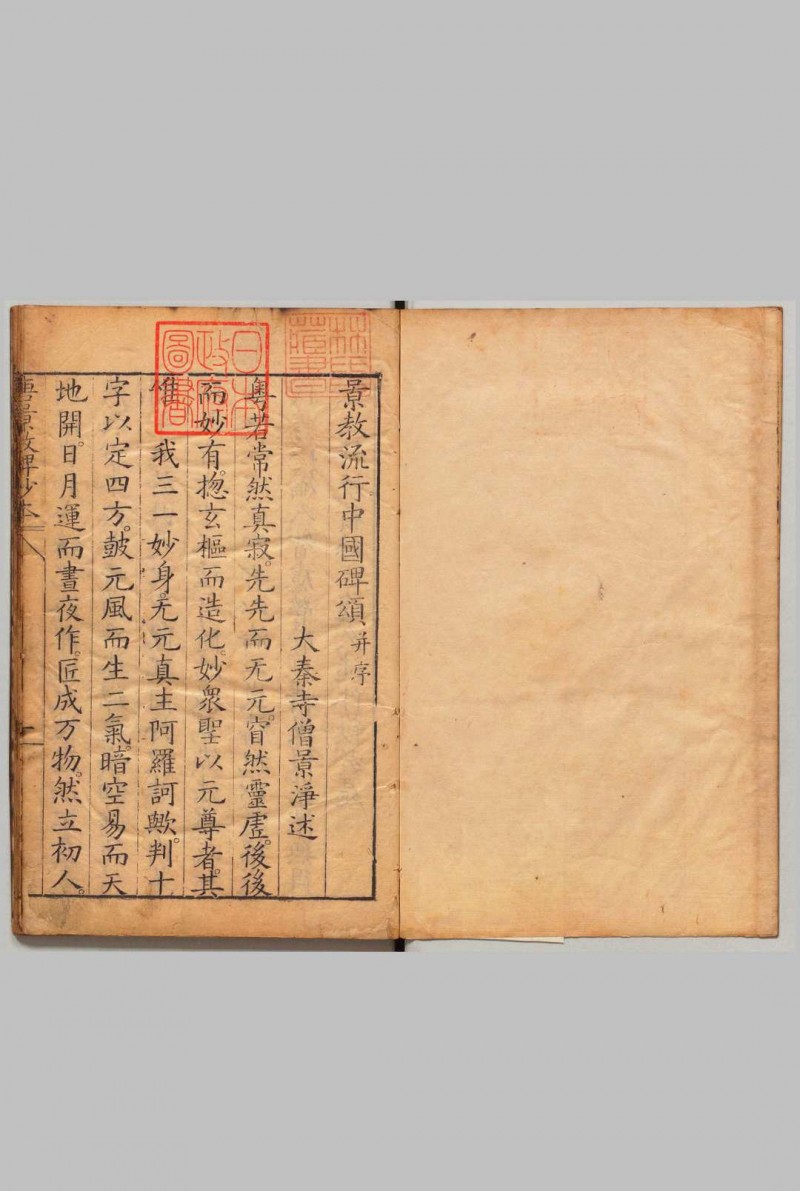 景教流行中國碑頌并序
大秦寺僧景淨述
粤若常然真寂。先先而无元。窅然靈虛。後後
而妙有。揔玄樞而造化。妙衆聖以元尊者。其
惟 我三一妙身。无元真主阿羅訶歟。判十
字以定四方。皷元風而生二氣。暗空易而天
地開。日月運而晝夜作。匠成万物。然立初人。
唐景教碑抄本
一
日本政圖書
林氏藏書